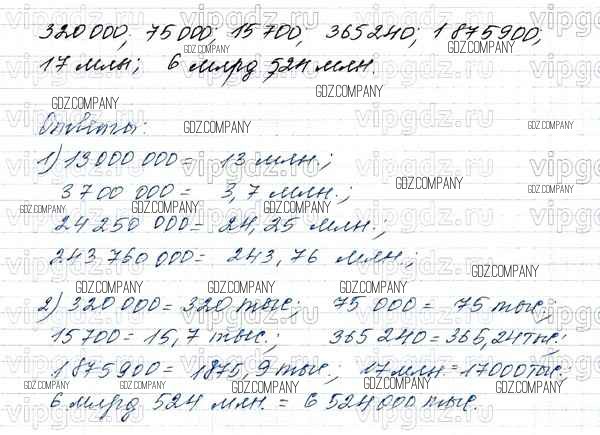 320 000; 75 000; 15 700; 365 240; 1 875 900;
17 млн; 6 млрд 524 млн.
Ответы:
1) 13 000 000 = 13 млн.;
3 700 000 = 3,7 млн.;
24 250 000 = 24,25 млн.;
243 760 000 = 243,76 млн.;
2) 320 000 = 320 тыс.; 75 000 = 75 тыс.;
15 700 = 15,7 тыс.; 365 240 = 365,24 тыс.;
1 875 900 = 1875,9 тыс.; 17 млн = 17000 тыс.;
6 млрд 524 млн. = 6 524 000 тыс.
GDZ.COMPANY
vipgdz.ru